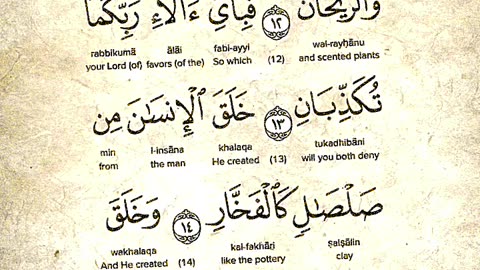 وَالرَّيْحَانُ ١٢ فَبِأَيِّ ءَالَآءِ رَبِّكُمَا
rabbikumā ālāi fabi-ayyi wal-rayḥānu
your Lord (of) favors (of the) So which (12) and scented plants
تُكَذِّبَانِ ١٣ خَلَقَ ٱلْإِنسَٰنَ مِن
min l-insāna khalaqa tukadhibāni
from the man He created (13) will you both deny
صَلْصَٰلٍ كَٱلْفَخَّارِ ١٤ وَخَلَقَ
wakhalaqa kal-fakhāri ṣalṣālin
And He created (14) like the pottery clay